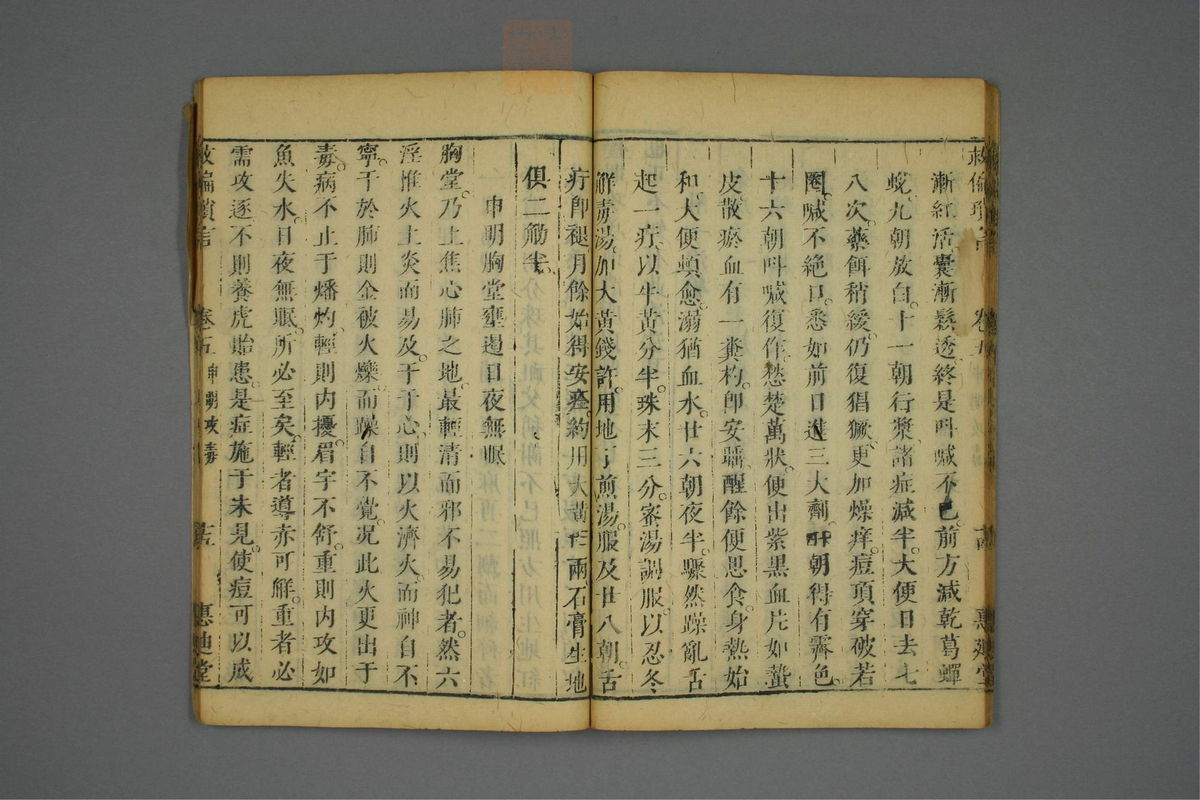 救偏瑣言 卷五 惠廸堂
漸紅活囊漸鬆透終是叫喊不已前方減乾葛蟬
蛻九朝放白十一朝行漿諸症減半大便日去七
八次藥餌稍緩仍復猖獗更加燥痒痘頂穿破若
圈喊不絶口悉如前日進三大劑朝得有霽色
十六朝叫喊復作愁楚萬狀便出紫黑血片如蟄
皮散瘀血有一糞杓卽安臥醒餘便思食身熱始
和大便頓愈溺猶血水廿六朝夜半驟然躁亂舌
起一疔以牛黃分半珠末三分蜜湯調服以忍冬
解毒湯加大黃錢許用地丁煎湯服及廿八朝舌
疔卽褪月餘始得安痊約用大黃兩石膏生地
俱二觔半
一申明胸堂壅遏日夜無眠
胸堂乃上焦心肺之地最輕清而邪不易犯者然六
淫惟火上炎而易及于心則以火濟火而神自不
寧于於肺則金被火爍而躁自不覺况此火更出于
毒病不止于燔灼輕則内擾眉宇不舒重則内攻如
魚失水日夜無眠所必至矣輕者導赤可解重者必
需攻逐不則養虎貽患是症施于未見使痘可以成
救偏瑣言 卷五 申明攻毒 十五 惠廸堂